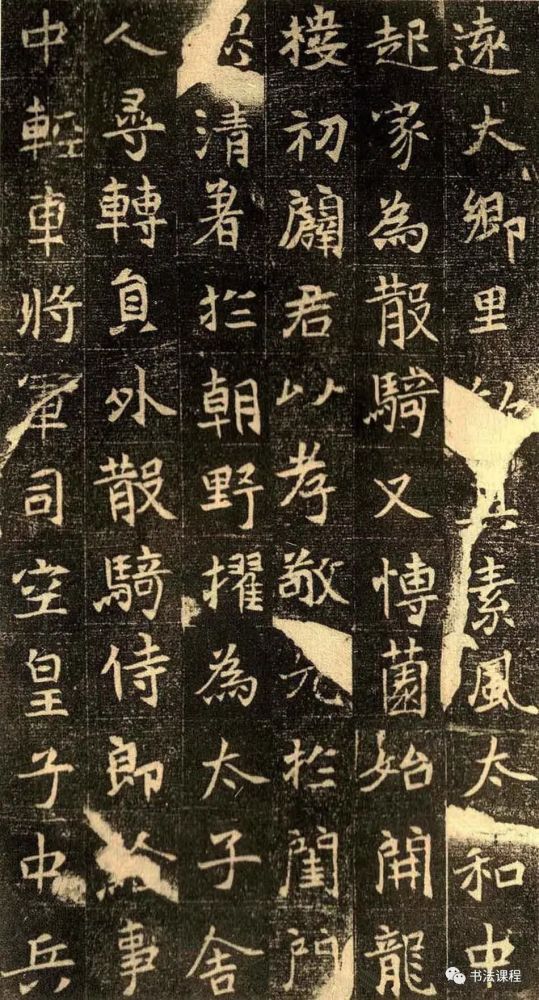 遠大鄉里素風太和中
起家為散騎又愽薗始開龍
樓初闢君以孝敬光扵閨門
清著扵朝野擢為太子舍
人尋轉員外散騎侍郎給事
中輕車將軍司空皇子中兵
书法课程